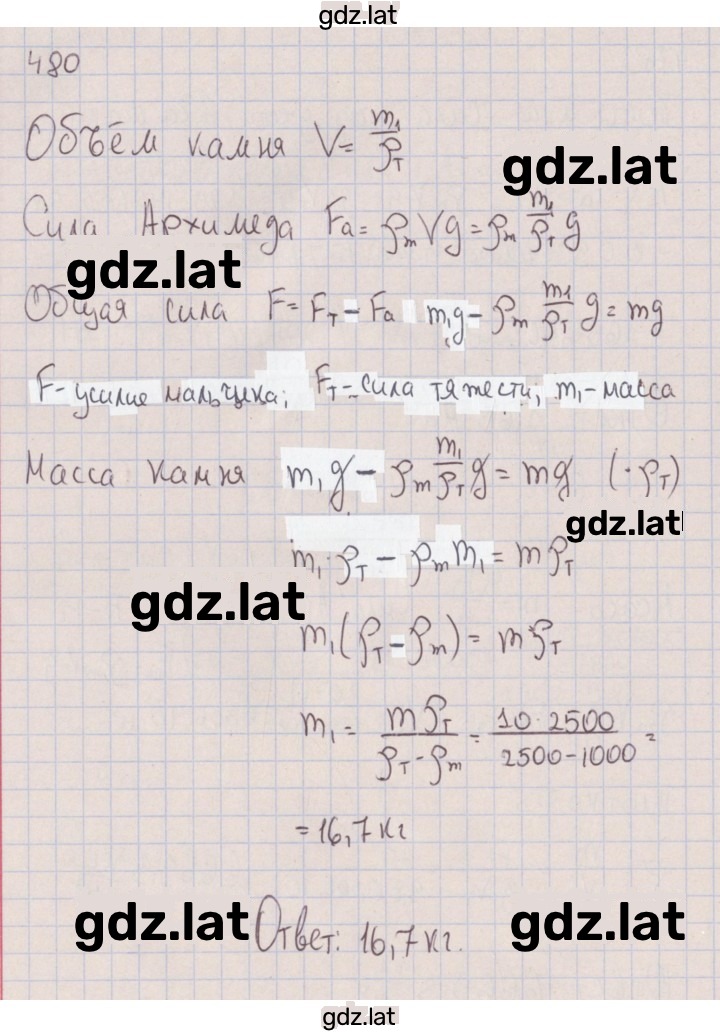 gdz.lat
480
Объём камня V = m₁/ρт
gdz.lat
Сила Архимеда Fа = ρm Vg = ρm m₁/ρт g
gdz.lat
Общая сила F = Fт - Fа m₁g - ρm m₁/ρт g = mg
F - усилие мальчика; Fт - сила тяжести, m₁ - масса
Масса камня m₁g - ρm m₁/ρт g = mg (· ρт)
gdz.lat
m₁ · ρт - ρm m₁ = m ρт
gdz.lat
m₁(ρт - ρm) = m ρт
m₁ = mρт/(ρт - ρm) = 10·2500/(2500-1000) =
= 16,7 кг
gdz.lat Ответ: 16,7 кг. gdz.lat
gdz.lat